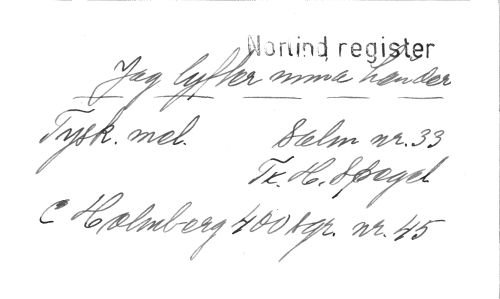 Norlind register
Jag lyfter mina händer
Tysk. mel. Psalm nr. 33
Tx. H. Spegel
C Holmberg 400 sgr. nr. 45